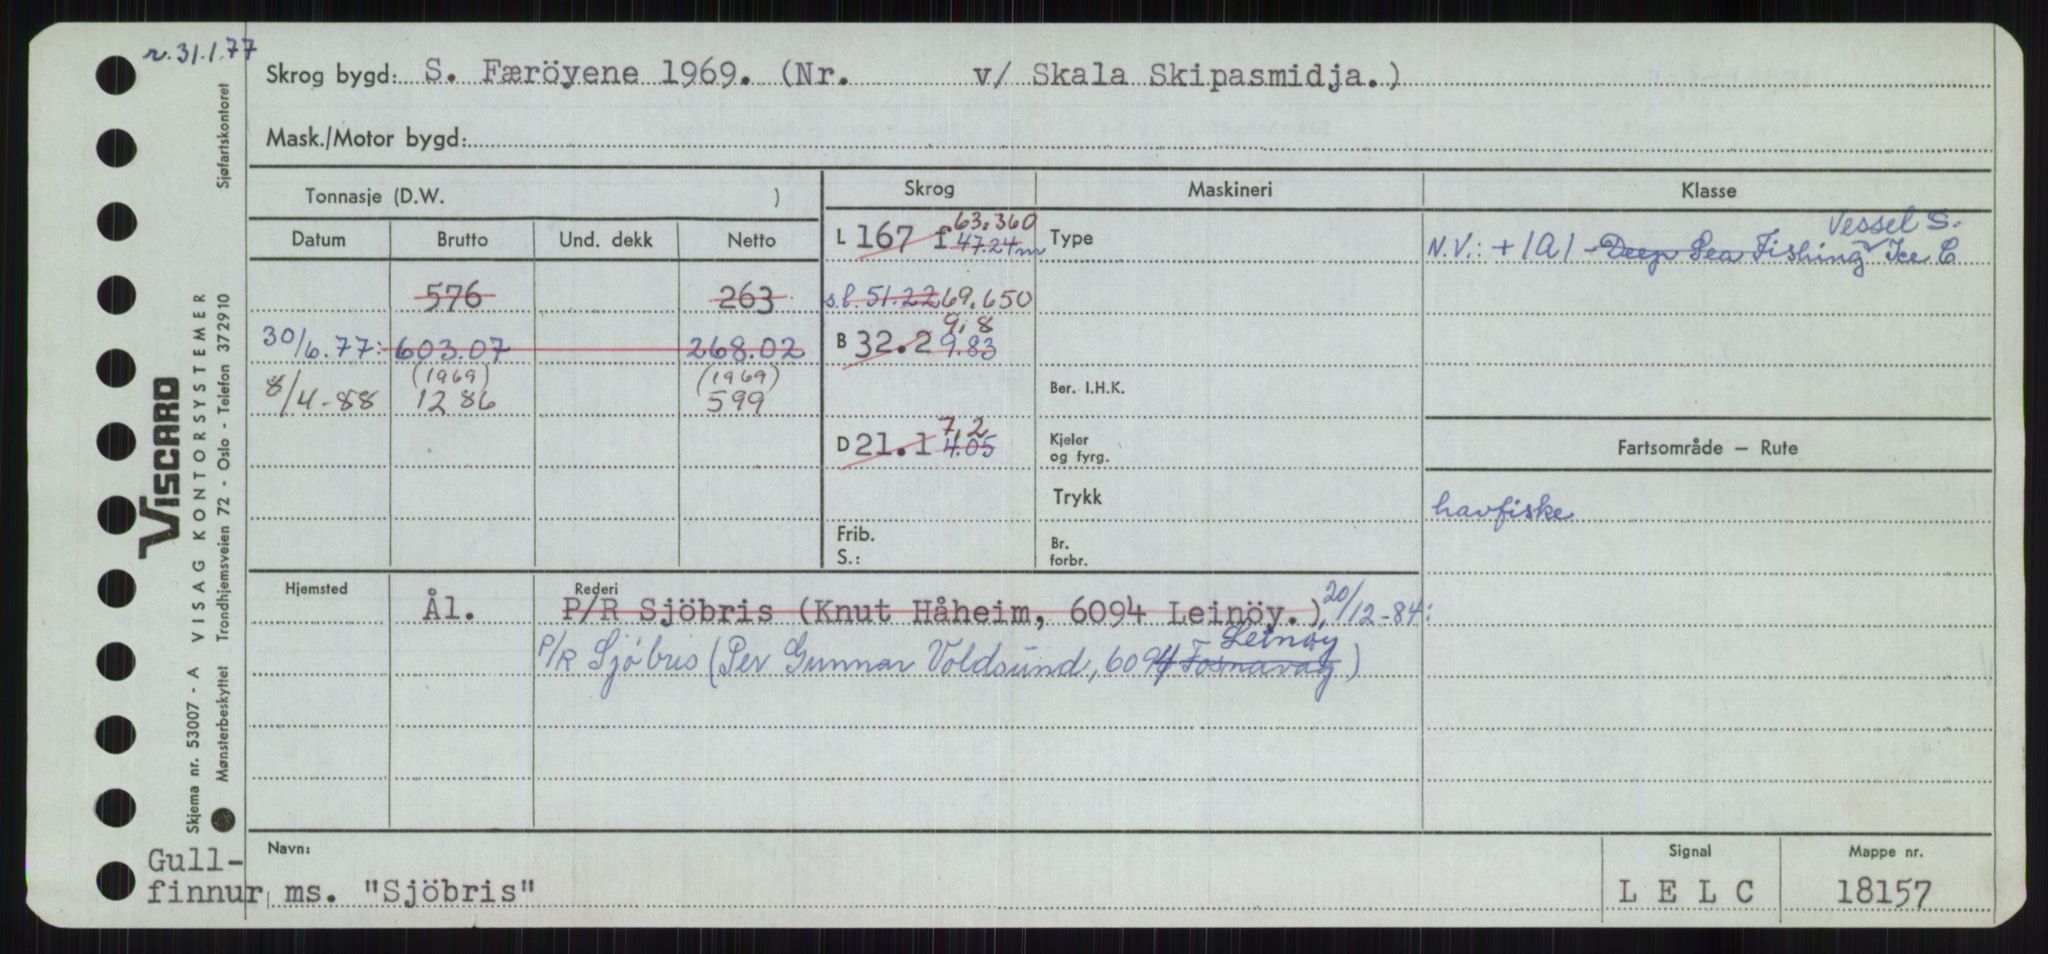 r. 31.1.77
Skrog bygd: S. Færöyene 1969. (Nr. v/ Skala Skipasmidja.)
Mask./Motor bygd:
Tonnasje (D.W. )
Skrog
Maskineri
Klasse
Datum
Brutto
Und. dekk
Netto
L 167 f 47.24m 63.360
Type
N.V.: + 1A1 - Deep Sea Fishing Vessel S. Ice C
576
263
s.l. 51.22 69.650
30/6.77: 603.07
268.02
B 32.2 9.83 9,8
8/4-88
(1969)
1286
(1969)
599
Ber. I.H.K.
D 21.1 4.05 7,2
Kjeler
og fyrg.
Fartsområde – Rute
Trykk
havfiske
Frib.
S.:
Br.
forbr.
Hjemsted
Rederi
Ål.
P/R Sjöbris (Knut Håheim, 6094 Leinöy.) 20/12-84:
Leinøy
P/R Sjöbris (Per Gunnar Voldsund, 6094 Fosnavåg)
Navn:
Signal
Mappe nr.
Gull-
finnur ms. "Sjöbris"
L E L C
18157
Sjøfartskontoret
VISCARD
VISAG KONTORSYSTEMER
Trondhjemsveien 72 - Oslo - Telefon 372910
Skjema nr. 53007 - A
Mønsterbeskyttet